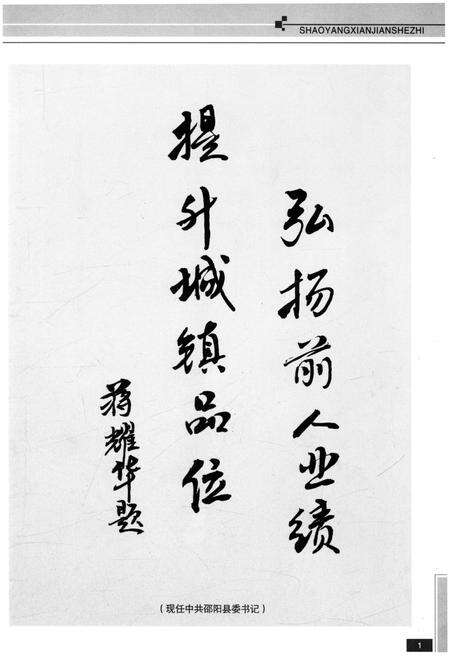 SHAOYANGXIANJIANSHEZHI
弘扬前人业绩
提升城镇品位
蒋耀华题
（现任中共邵阳县委书记）
1